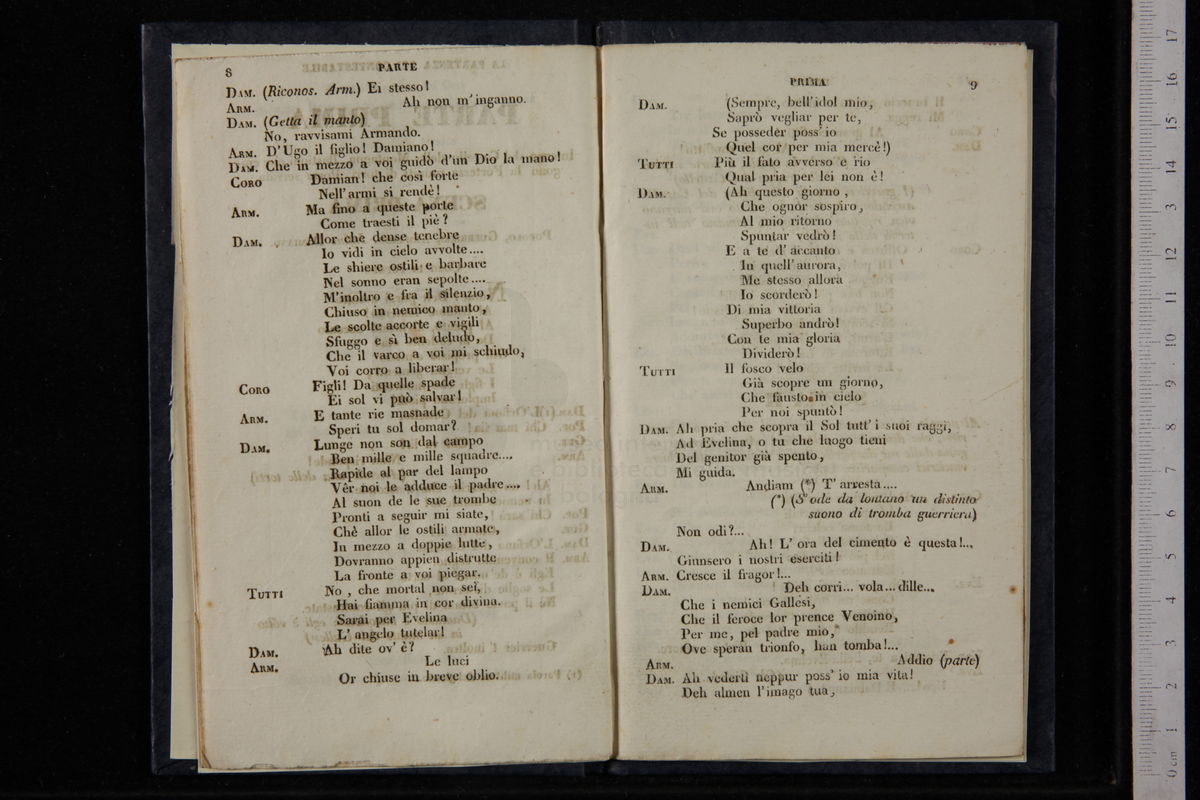 8 PARTE
DAM. (Riconos. Arm.) Ei stesso!
ARM. Ah non m'inganno.
DAM. (Getta il manto)
No, ravvisami Armando.
ARM. D'Ugo il figlio! Damiano!
DAM. Che in mezzo a voi guidò d'un Dio la mano!
CORO Damian! che così forte
Nell'armi si rendè!
ARM. Ma fino a queste porte
Come traesti il piè?
DAM. Allor che dense tenebre
Io vidi in cielo avvolte....
Le shiere ostili e barbare
Nel sonno eran sepolte....
M'inoltro e fra il silenzio,
Chiuso in nemico manto,
Le scolte accorte e vigili
Sfuggo e sì ben deludo,
Che il varco a voi mi schiudo,
Voi corro a liberar!
CORO Figli! Da quelle spade
Ei sol vi può salvar!
ARM. E tante rie masnade
Speri tu sol domar?
DAM. Lunge non son dal campo
Ben mille e mille squadre....
Rapide al par del lampo
Vêr noi le adduce il padre....
Al suon de le sue trombe
Pronti a seguir mi siate,
Chè allor le ostili armate,
In mezzo a doppie lutte,
Dovranno appien distrutte
La fronte a voi piegar.
TUTTI No, che mortal non sei,
Hai fiamma in cor divina.
Sarai per Evelina
L'angelo tutelar!
DAM. Ah dite ov'è?
ARM. Le luci
Or chiuse in breve oblio.
PRIMA 9
DAM. (Sempre, bell'idol mio,
Saprò vegliar per te,
Se posseder poss'io
Quel cor per mia mercè!)
TUTTI Più il fato avverso e rio
Qual pria per lei non è!
DAM. (Ah questo giorno,
Che ognor sospiro,
Al mio ritorno
Spuntar vedrò!
E a te d'accanto
In quell'aurora,
Me stesso allora
Io scorderò!
Di mia vittoria
Superbo andrò!
Con te mia gloria
Dividerò!
TUTTI Il fosco velo
Già scopre un giorno,
Che fausto in cielo
Per noi spuntò!
DAM. Ah pria che scopra il Sol tutt'i suoi raggi,
Ad Evelina, o tu che luogo tieni
Del genitor già spento,
Mi guida.
ARM. Andiam (*) T'arresta....
(*) (S'ode da lontano un distinto
suono di tromba guerriera)
Non odi?...
DAM. Ah! L'ora del cimento è questa!...
Giunsero i nostri eserciti!
ARM. Cresce il fragor!...
DAM. Deh corri... vola... dille...
Che i nemici Gallesi,
Che il feroce lor prence Venoino,
Per me, pel padre mio,
Ove speran trionfo, han tomba!...
ARM. Addio (parte)
DAM. Ah vederti neppur poss'io mia vita!
Deh almen l'imago tua,